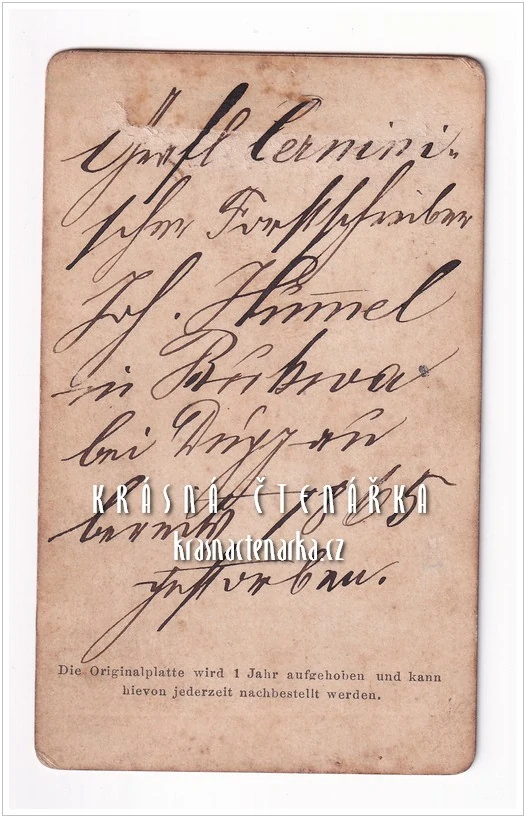 Gräfl Cernini-
scher Forstschreiber
Joh. Hummel
in Bukwa
bei Duppau
bereits 1865
gestorben.
KRÁSNÁ ČTENÁŘKA
krasnactenarka.cz
Die Originalplatte wird 1 Jahr aufgehoben und kann
hievon jederzeit nachbestellt werden.